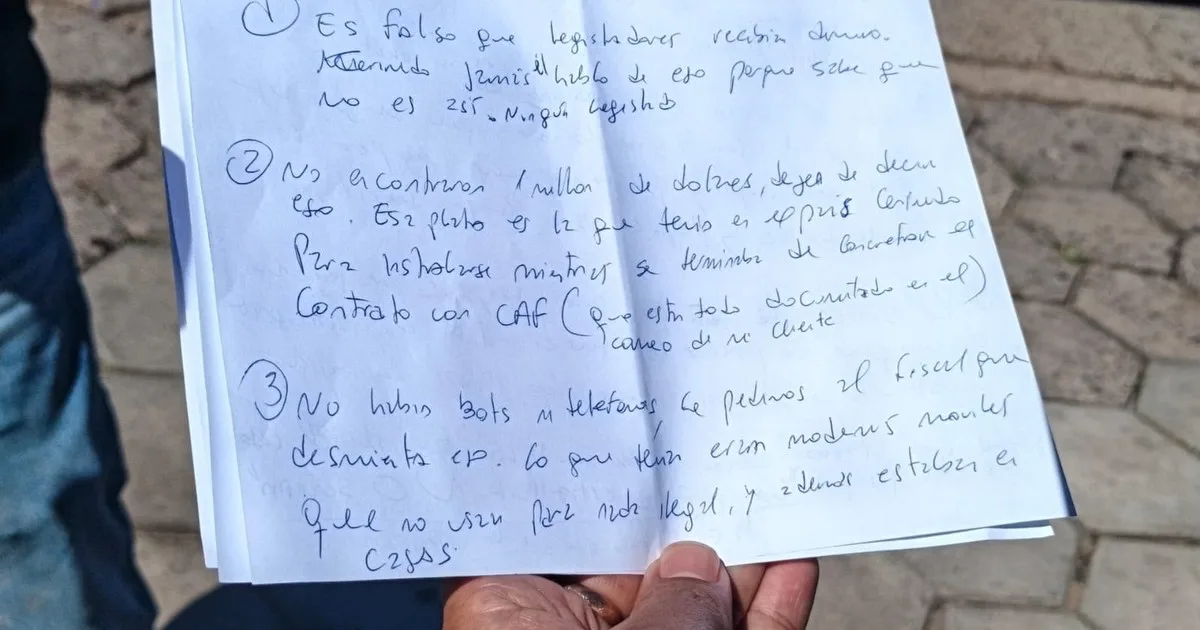 ① Es falso que legisladores recibían dinero.
jamás él habló de eso porque sabe que
no es así. Ningún Legislad
② No encontraron 1 millon de dolares, dejen de decir
eso. Esa plata es la que tenia en el pais
Para instalarse mientras se terminaba de concretar el
Contrato con CAF (que esta todo documentado en el)
correo de mi cliente
③ No habia Bots ni telefonos, le pedimos al fiscal que
desmienta eso. Lo que tenía eran modems moviles
Que no usan para nada ilegal, y ademas estaban en
cajas.